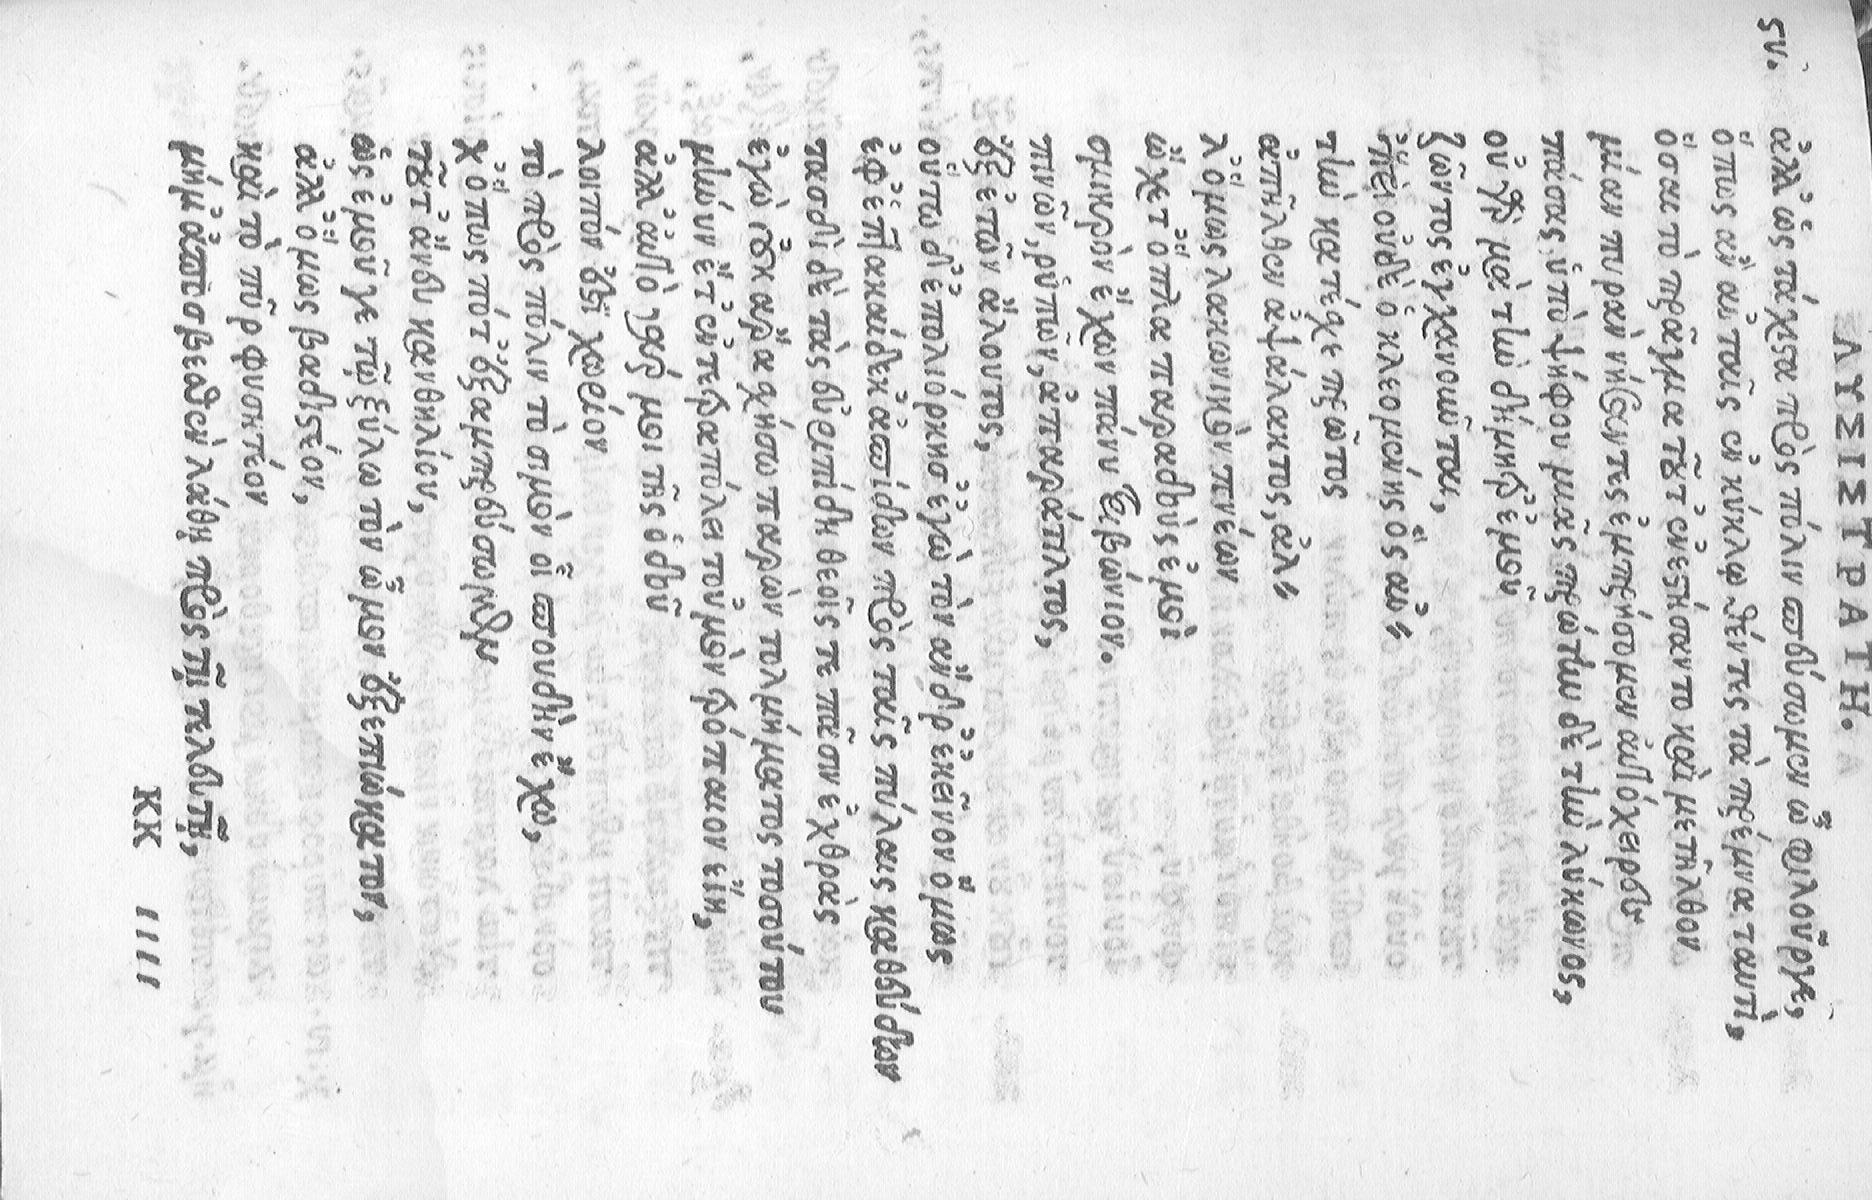 ΛΥΣΙΣΤΡΑΤΗ.
ϛυ. ἀλλ' ὡς τάχιστα πρὸς πόλιν σπεύσωμεν ὦ φιλοῦργε,
ὅπως ἂν αὐταῖς ἐν κύκλῳ θέντες τὰ πρέμνα ταυτὶ,
ὅσαι τὸ πρᾶγμα τοῦτ' ἐνεστήσαντο καὶ μετῆλθον
μίαν πυρὰν νήσαντες ἐμπρήσωμεν αὐτόχειρες
πάσας ὑπὸ ψήφου μιᾶς πρώτην δὲ τὴν λύκωνος,
οὐ γὰρ μὰ τὴν δήμητρ' ἐμοῦ
ζῶντος ἐγχανοῦνται,
ἐπεὶ οὐδὲ ὁ κλεομένης ὃς αὐ-
τὴν κατέσχε πρῶτος
ἀπῆλθεν ἀψάλακτος, ἀλ-
λ' ὅμως λακωνικὸν πνέων
ᾤχετ' ὅπλα παραδοὺς ἐμοὶ
σμικρὸν ἔχων πάνυ τριβώνιον.
πινῶν, ῥυπῶν, ἀπαράτιλτος,
ἓξ ἐτῶν ἄλουτος,
οὕτω δ' ἐπολιόρκησ' ἐγὼ τὸν ἄνδρ' ἐκεῖνον ὅμως
ἐφ' ἑπτακαίδεκ' ἀσπίδων πρὸς ταῖς πύλαις καθεύδων
τασδὶ δὲ τὰς εὐριπίδῃ θεοῖς τε πᾶσιν ἐχθρὰς
ἐγὼ οὐκ ἄρα σχήσω παρὼν τολμήματος τοσούτου
μή νυν ἔτ' ἐν τετραπόλει τοὐμὸν τρόπαιον εἴη,
ἀλλ' αὐτὸ γάρ μοι τῆς ὁδοῦ
λοιπόν ἐστι χωρίον
τὸ πρὸς πόλιν τὸ σιμὸν οἷ σπουδὴν ἔχω,
χ' ὅπως ποτ' ἐξαμπρεύσωμεν
τοῦτ' ἄνευ κανθηλίου,
ὡς ἐμοῦ γε τῷ ξύλω τὸν ὦμον ἐξεπιώκατον,
ἀλλ' ὅμως βαδιστέον,
καὶ τὸ πῦρ φυσητέον
μή μ' ἀποσβεσθὲν λάθῃ πρὸς τῇ τελευτῇ,
KK IIII